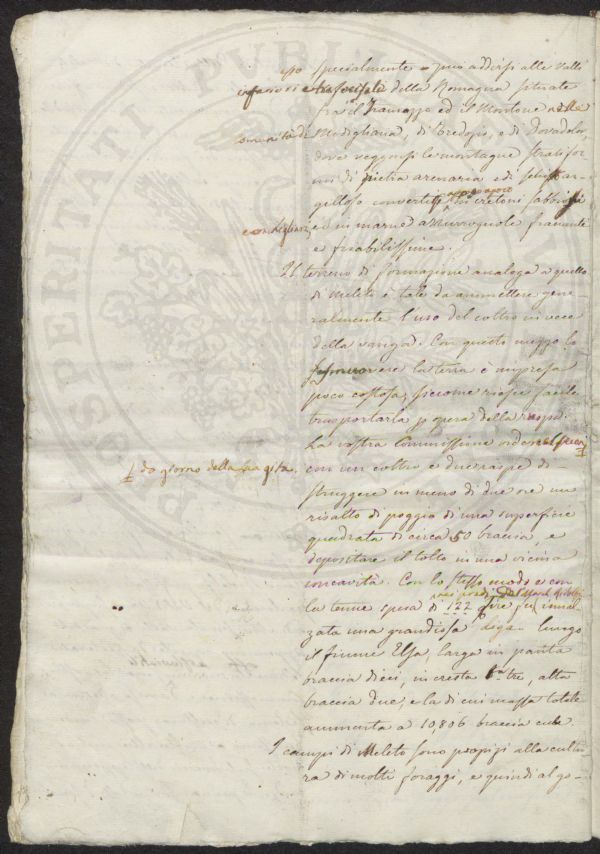 esso specialmente può addirsi alle Valli
inferiori e trasversali della Romagna situate
fra il Tramazzo ed il Montone nelle
comunità di Modigliana, di Tredozio, e di Dovadola,
dove veggonsi le montagne stratifor
mi di pietra arenaria e di schisto ar-
gilloso convertirsi a poco a poco in cretoni sabbiosi
e conchigliari, ed in marne a Nuvvognole
e friabilissime.
Il terreno di formazione analoga a quello
di Meleto è tale da ammettere gene-
ralmente l'uso del coltro in vece
della vanga. Con questo mezzo lo
smuovere la terra è impresa
poco costosa, siccome riesce facile
trasportarla p opera della ruspa.
La vostra Commissione vide nel
1. do giorno della sua gita.
con un coltro e due ruspe di-
struggere in meno di due ore un
risalto di poggio di una superficie
quadrata di circa 50 braccia, e
depositare il tolto in una vicina
concavità. Con lo stesso modo e con
la tenue spesa di 122 lire fu innal-
zata una grandiosa diga lungo
il fiume Elsa, larga in pianta
braccia dieci, in cresta tre, alta
braccia due, e la di cui massa totale
ammonta a 10,806 braccia cube.
I campi di Meleto sono propizi alla cultu-
ra di molti foraggi, e quindi al go-
PROSPERITATI PUBLI